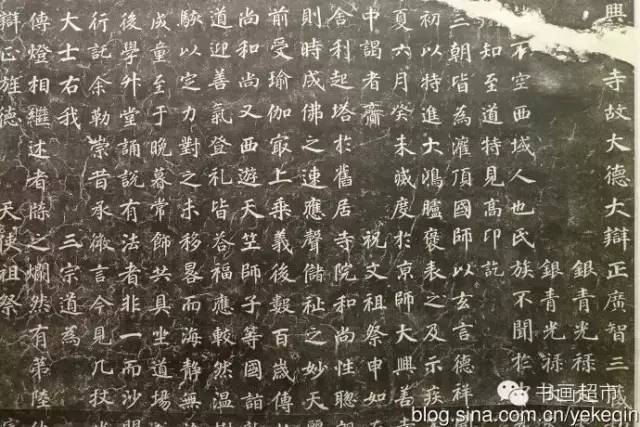 興 寺故大德大辯正廣智三藏
銀青光祿
銀青光祿
不空西域人也氏族不聞於
知至道特見高卬訖
三朝皆為灌頂國師以玄言德祥
初以特進大鴻臚褒表之及示疾
夏六月癸未滅度於京師大興善
中謁者齎 祝文祖祭申如在
舍利起塔於舊居寺院和尚性聰
則時成佛之速應聲儲祉之妙天
前受瑜伽最上乘義後數百歲傳
尚和尚又西遊天竺師子等國詣
道迎善氣登礼皆荅福應較然溫樹
駃以定力對之未移晷而海靜無
戍童至于晚暮常飾共具坐道場
後學升堂誦說有法者非一而沙門
行託余勒崇昔承微言今見几杖
大士右我 三宗道為
傳燈相繼述者牒之爛然有弟陸
辯正旌德 天使祖祭
书画超市
blog.sina.com.cn/yekeqin